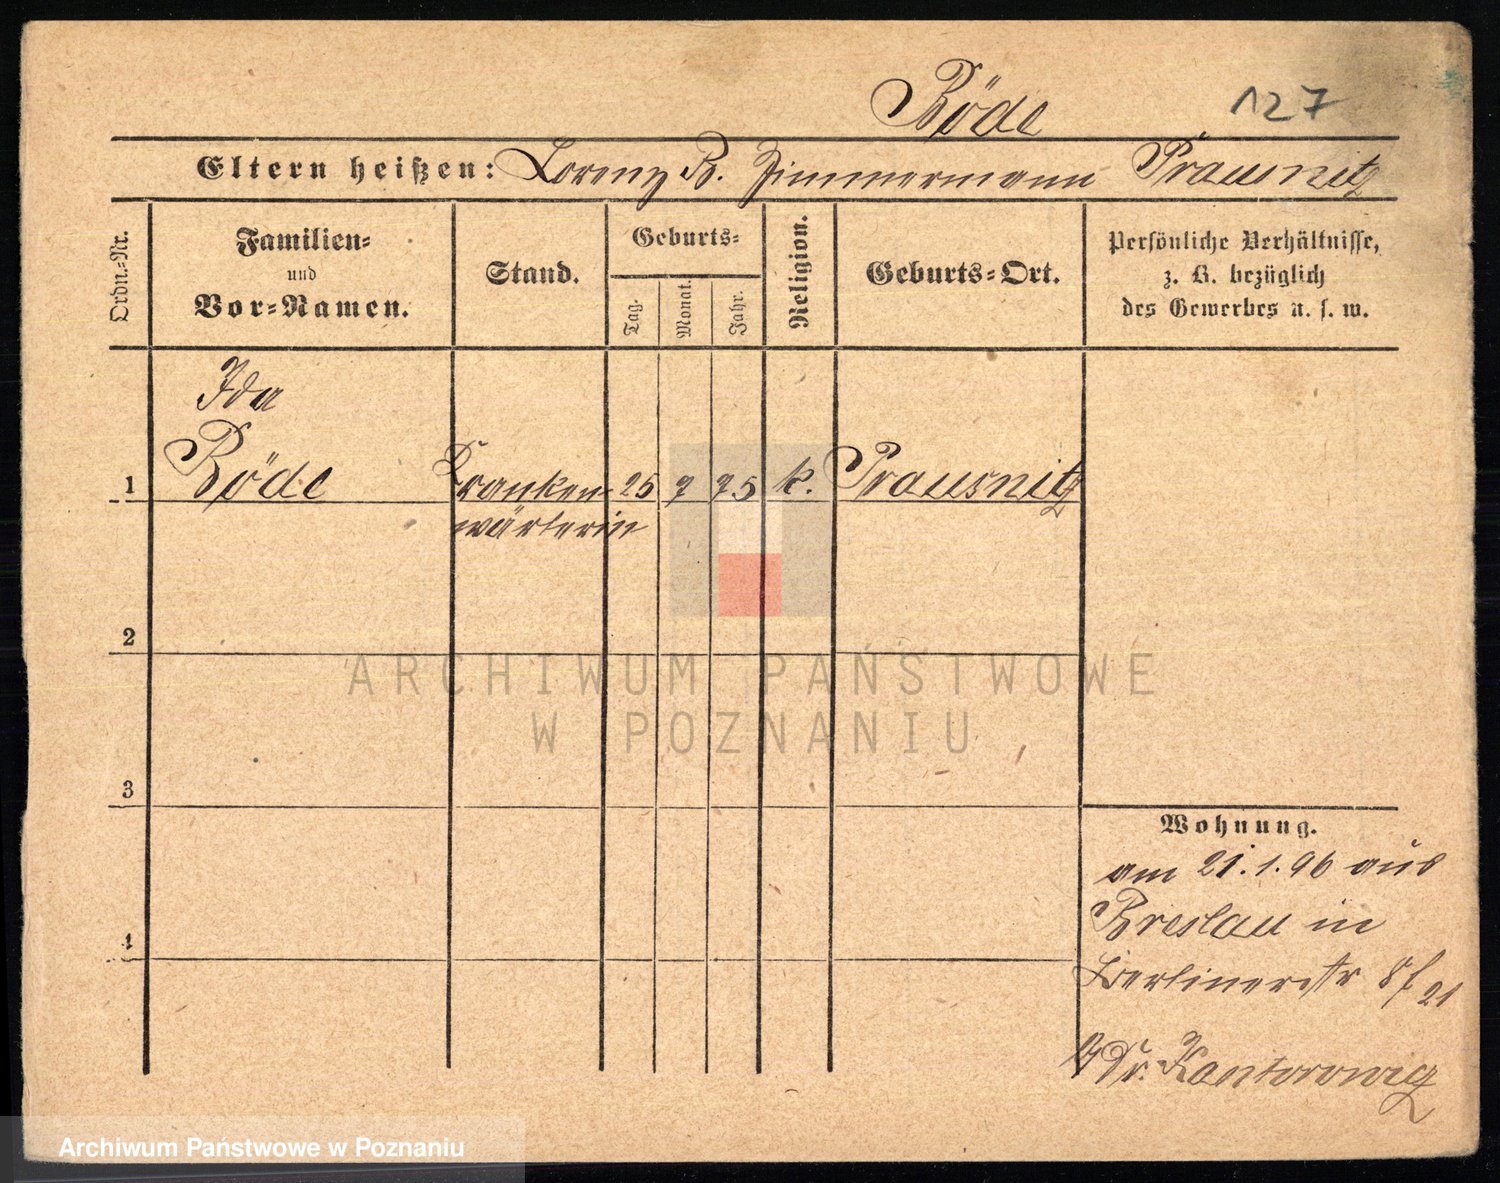 Böde 127
Eltern heißen: Lorenz B. Zimmermann Prausnitz
Ordn.-Nr.
Familien-
und
Vor-Namen.
Stand.
Geburts-
Tag.
Monat.
Jahr.
Religion.
Geburts-Ort.
Persönliche Verhältnisse,
z. B. bezüglich
des Gewerbes u. s. w.
Ida
1 Böde Kranken- 25 9 75 k. Prausnitz
wärterin
2
3
4
ARCHIWUM PAŃSTWOWE
W POZNANIU
Wohnung.
am 21.1.96 aus
Breslau in
Berlinerstr 8
Dr. Kantorowicz
Archiwum Państwowe w Poznaniu